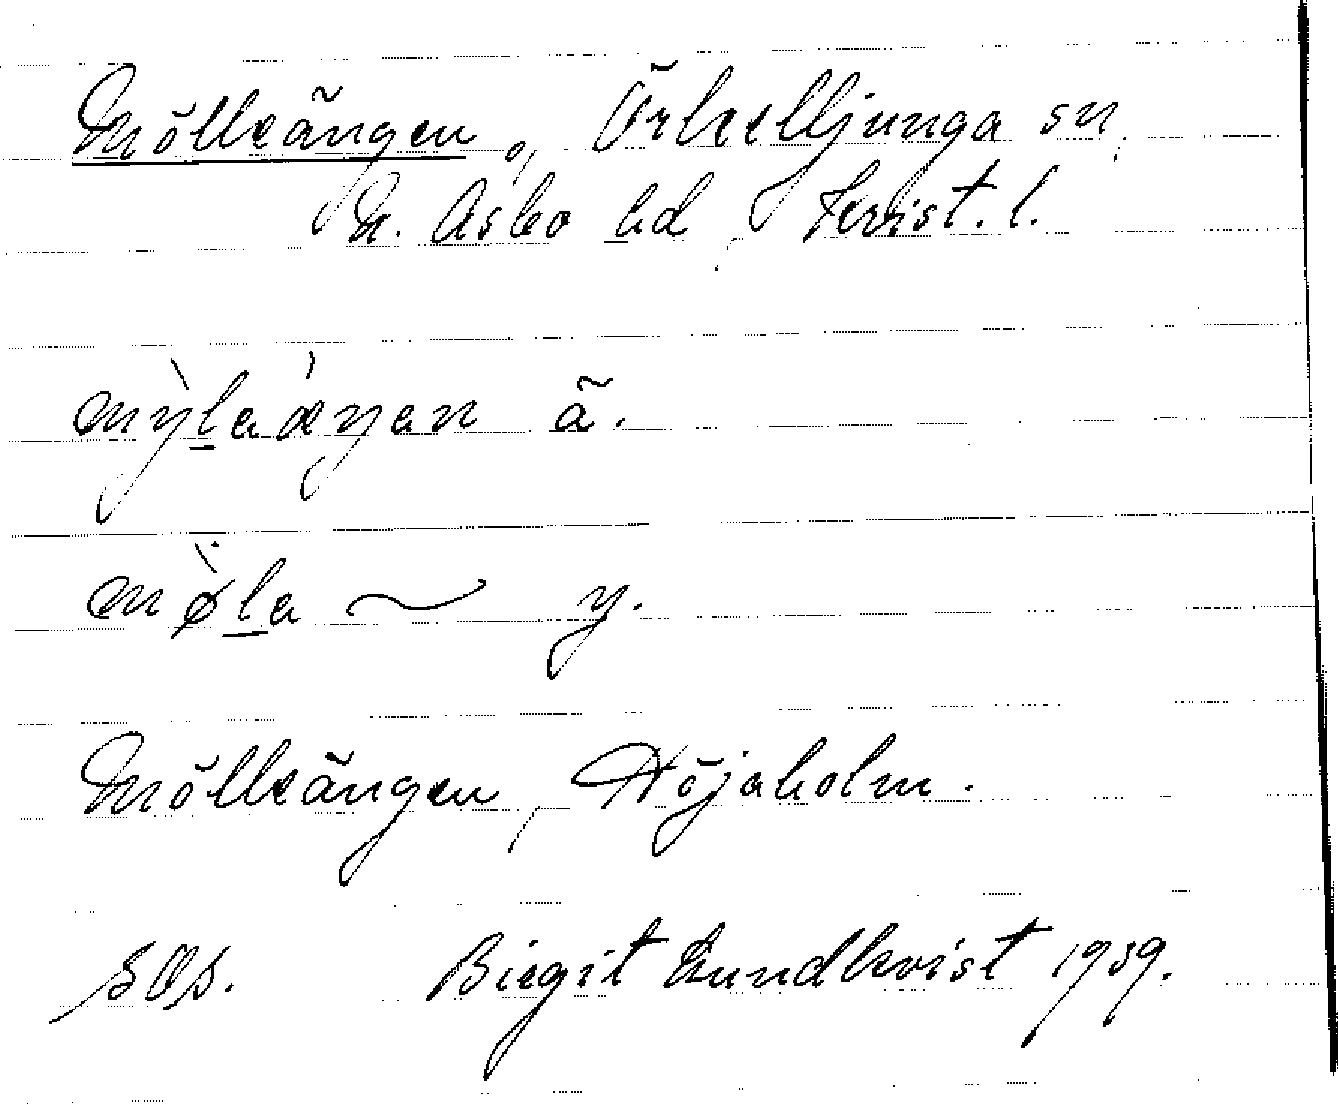 Mölleängen, Örkelljunga sn,
N. Åsbo hd, Krist. l.
mỳlaǽŋan ä.
mø̀la ~ y.
Mölleängen, Höjaholm.
SOS. Birgit Lundkvist 1939.